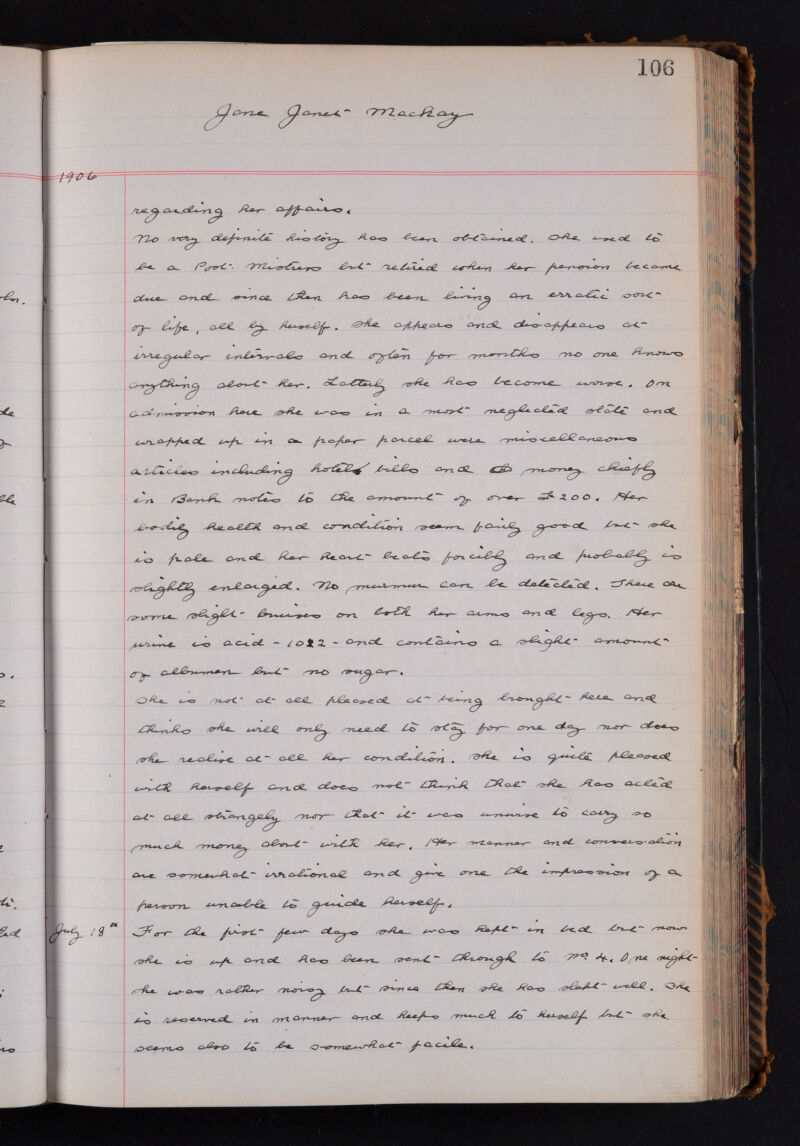 106
Jane Janet Mackay
1906
regarding her affairs.
No very definite history has been obtained. She used to
be a Post Mistress but retired when her pension became
due and since then has been living an erratic sort
of life, all by herself. She appears and disappears at
irregular intervals and often for months no one knows
anything about her. Latterly she has become worse. On
admission here she was in a most neglected state and
wrapped up in a paper parcel were miscellaneous
articles including hotel bills and money chiefly
in Bank notes to the amount of over £200. Her
bodily health and condition seem fairly good but she
is pale and her heart beats forcibly and probably is
slightly enlarged. No murmur can be detected. There are
some slight bruises on both her arms and legs. Her
urine is acid - 1022 - and contains a slight amount
of albumen but no sugar.
She is not at all pleased at being brought here and
thinks she will only need to stay for one day nor does
she realise at all her condition. She is quite pleased
with herself and does not think that she has acted
at all strangely nor that it was unwise to carry so
much money about with her. Her manner and conversation
are somewhat irrational and give one the impression of a
person unable to guide herself.
July 18th For the first few days she was kept in bed but now
she is up and has been sent through to No 4. One night
she was rather noisy but since then she has slept well. She
is reserved in manner and keeps much to herself but she
seems also to be somewhat facile.